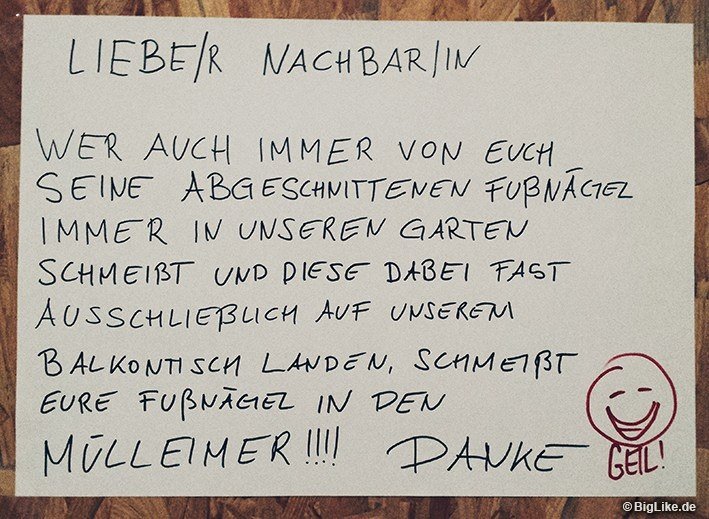 LIEBE/R NACHBAR/IN
WER AUCH IMMER VON EUCH
SEINE ABGESCHNITTENEN FUßNÄGEL
IMMER IN UNSEREN GARTEN
SCHMEIßT UND DIESE DABEI FAST
AUSSCHLIEßLICH AUF UNSEREM
BALKONTISCH LANDEN, SCHMEIßT
EURE FUßNÄGEL IN DEN
MÜLLEIMER!!!! DANKE
GEIL!
© BigLike.de